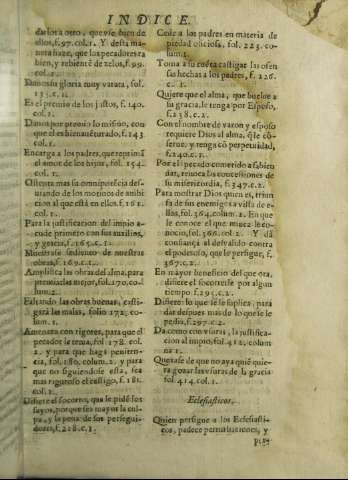 INDICE.
darlos a otro, que vse bien de
ellos, f. 97. col. 1. Y desta ma-
nera haze, que los pecadores ra
bien, y rebiente de zelos, f. 99.
col. 1.
Danos su gloria muy varata, fol.
135. c. 1.
Es el premio de los justos, f. 140.
col. 1.
Danos por premio lo mismo, con
que el es bienaventurado, f. 143
col. 1.
Encarga a los padres, que repriman
el amor de los hijos, fol. 154.
col. 1.
Ostenta mas su omnipotēcia des-
viando de los moçuelos de ambi
cion al que está en ellos, f. 161.
col. 1.
Para la justificacion del impio a-
cude primero con sus auxilios,
y gracia, f. 165. c. 1.
Muestrase sediento de nuestras
obras, f. 169. c. 1.
Amplifica las obras del alma, para
premiarlas mejor, fol. 170. co-
lum. 2.
Faltando las obras buenas, casti-
gará las malas, folio 172. co-
lum. 1.
Amenaza con rigores, para que el
pecador le tema, fol. 178. col.
2. y para que haga peniten-
cia, fol. 180. colum. 2. y para
que no siguiendose esta, sea
mas riguroso el castigo, f. 181.
col. 1.
Difiere el socorro, que le pidē los
suyos, porque sea mayor la cul-
pa, y la pena de sus persegui-
dores, f. 218. c. 1.
Cede a los padres en materia de
piedad oficiosa, fol. 223. co-
lum. 1.
Toma a su cuēta castigar las ofen
sas hechas a los padres, f. 226.
c. 1.
Quiere que el alma, que buelue a
la gracia, le tenga por Esposo,
f. 238. c. 2.
Con el nombre de varon y esposo
requiere Dios al alma, q̄ le cō-
serue, y tenga cō perpetuidad,
f. 240. c. 1.
Por el pecado cometido a sabien
das, rinucia las concessiones de
su misericordia, f. 347. c. 2.
Para mostrar Dios quien es, triun
fa de sus enemigos a vista de e-
llos, fol. 364. colum. 2. En que
le conoce el que nunca le co-
nocio, fol. 366. col. 2. Y dà
confiança al desvalido contra
el poderoso, que le persigue, f.
367. c. 2.
En mayor beneficio del que ora,
difiere el socorrerle por algun
tiempo f. 295. c. 2.
Difiere lo que se le suplica, para
dar despues mas de lo que se le
pedia, f. 297. c. 2.
Da como con vsuras, la justifica-
cion al impio, fol. 412. colum
na 1.
Quexase de que no aya quiē quie-
ra gozar las vsuras de la gracia
fol. 414. col. 1.
Eclesiasticos.
Quien persigue a los Eclesiasti-
cos, padece perturbaciones, y